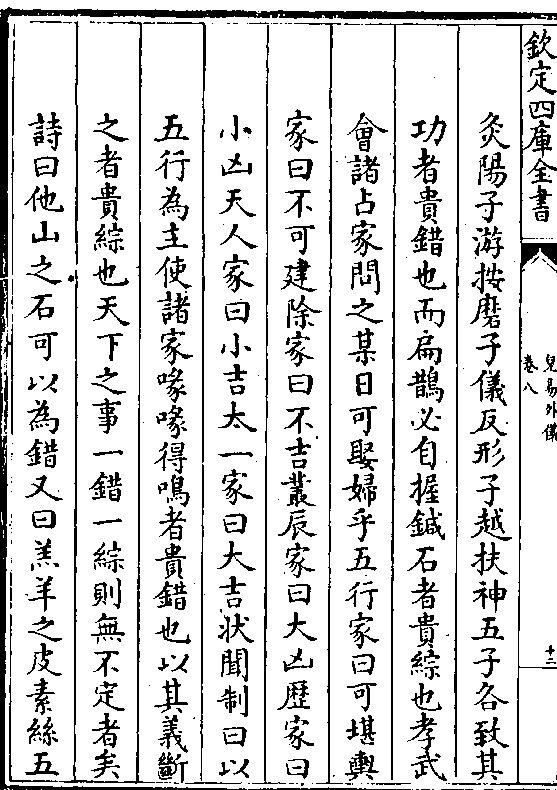 欽定四庫全書
兒易外儀
卷八
十三
灸陽子游按磨子儀反形子越扶神五子各致其
功者貴錯也而扁鵲必自握鍼石者貴綜也孝武
會諸占家問之某日可娶婦乎五行家曰可堪輿
家曰不可建除家曰不吉叢辰家曰大凶歴家曰
小凶天人家曰小吉太一家曰大吉状聞制曰以
五行為主使諸家喙喙得鳴者貴錯也以其義斷
之者貴綜也天下之事一錯一綜則無不定者矣
詩曰他山之石可以為錯又曰羔羊之皮素絲五